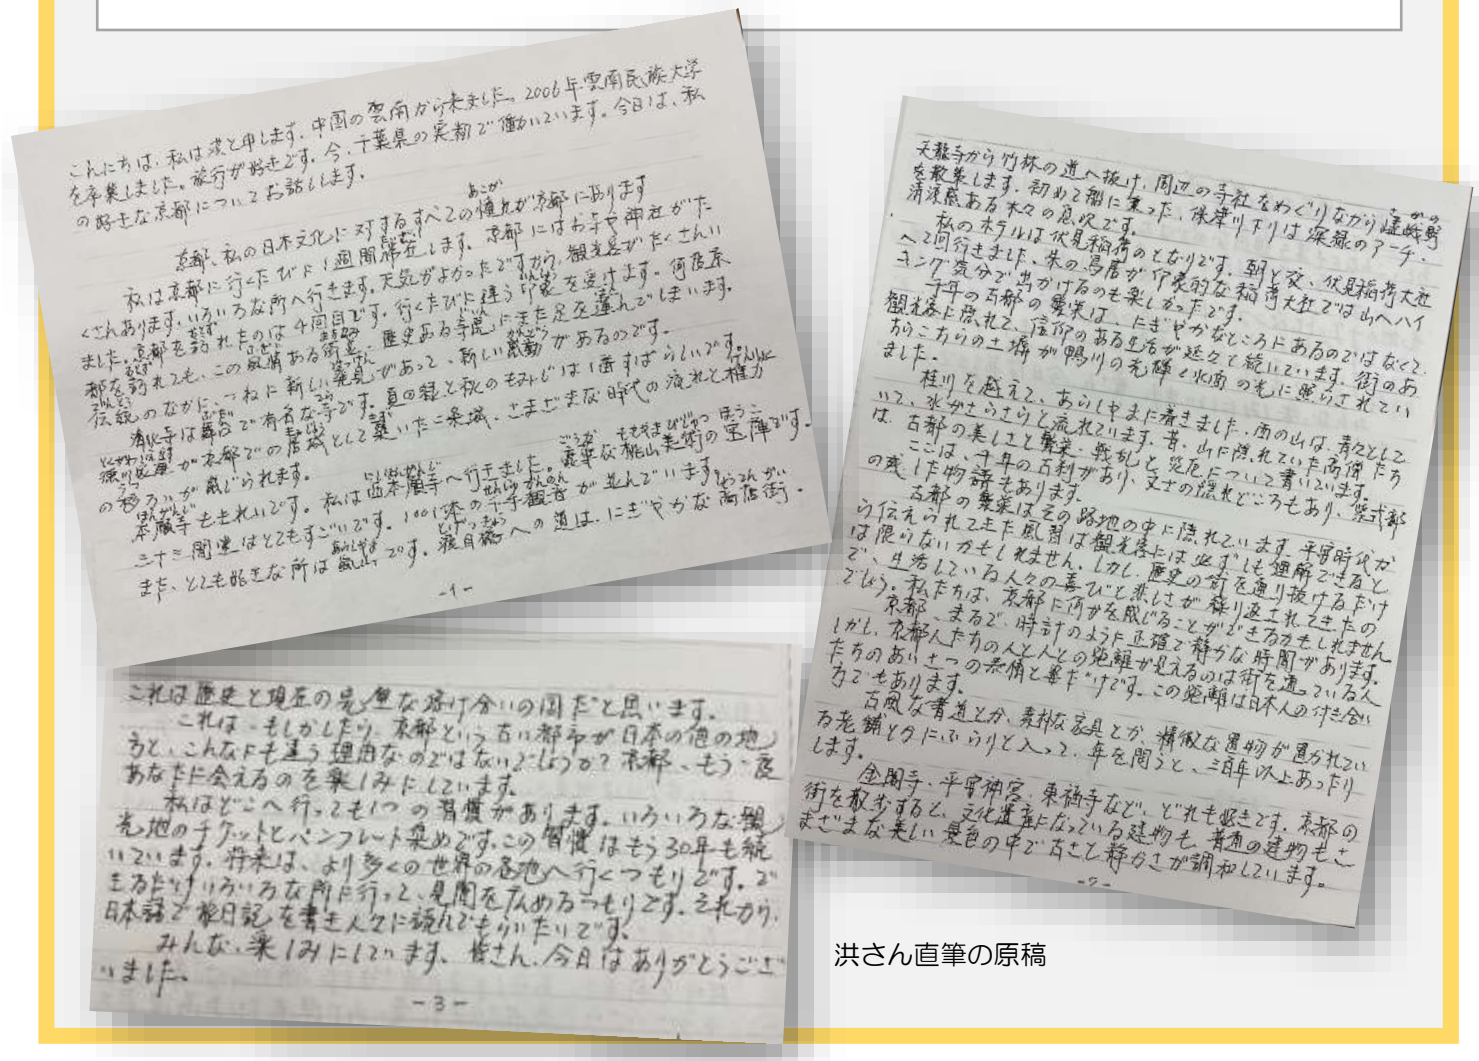 こんにちは、私は洪と申します。中国の雲南から来ました。2006年雲南民族大学
を卒業しました。旅行が好きです。今、千葉県の実籾で働いています。今日は、私
の好きな京都についてお話しします。
京都、私の日本文化に対するすべての憧れが京都にあります
私は京都に行くたびに1週間滞在します。京都にはお寺や神社がた
くさんあります。いろいろな所へ行きます。天気がよかったですから、観光客がたくさんい
ました。京都を訪れたのは4回目です。行くたびに違う印象を受けます。何度京
都を訪れても、この風情ある街並、歴史ある寺院にまた足を運んでしまいます。
伝統のなかに、つねに新しい発見があって、新しい感動があるのです。
清水寺は舞台で有名な寺です。夏の緑と秋のもみじは1番すばらしいです。
徳川家康が京都での居城として築いた二条城、さまざまな時代の流れと権力
の移ろいが感じられます。
本願寺もきれいです。私は西本願寺へ行きました。豪華な桃山美術の宝庫です。
三十三間堂はとてもすごいです。1001体の千手観音が並んでいます。
また、とても好きな所は嵐山です。渡月橋への道は、にぎやかな商店街。
-1-
天龍寺から竹林の道へ抜け、周辺の寺社をめぐりながら嵯峨野
を散策します。初めて船に乗った、保津川下りは深緑のアーチ、
清涼感ある木々の息吹です。
私のホテルは伏見稲荷のとなりです。朝と夜、伏見稲荷大社
へ2回行きました。朱の鳥居が印象的な稲荷大社では山へハイ
キング気分で出かけるのも楽しかったです。
千年の古都の繁栄は、にぎやかなところにあるのではなくて、
観光客に隠れて、信仰のある生活が延々と続いています。街のあ
ちらこちらの土塀が鴨川の光輝く水面の光に照らされてい
ました。
桂川を越えて、あらしやまに着きました。雨の山は、青々として
いて、水がさらさらと流れています。昔、山に隠れていた高僧たち
は、古都の美しさと繁栄、戦乱と災厄について書いています。
ここは、千年の古刹があり、文士の隠れどころもあり、紫式部
の残した物語もあります。
古都の繁栄はその路地の中に隠れています。平安時代か
ら伝えられてきた風習は観光客には必ずしも理解できると
は限らないかもしれません。しかし、歴史の街を通り抜けるだけ
で、生活している人々の喜びと悲しさが繰り返されてきたの
でしょう。私たちは、京都に何かを感じることができるかもしれません
京都、まるで、時計のように正確で静かな時間があります。
しかし、京都人たちの人と人との距離が見えるのは街を通っている人
たちのあいさつの表情と畢だけです。この距離は日本人の付き合い
方でもあります。
古風な書道とか、素朴な家具とか、精緻な置物が置かれてい
る老舗とかにふらりと入って、年を聞うと、三百年以上あったり
します。
金閣寺、平安神宮、東福寺など、どれも好きです。京都の
街を散歩すると、文化遺産になっている建物も、普通の建物もさ
まざまな美しい景色の中で古さと静かさが調和しています。
-2-
これは歴史と現在の完璧な溶け合いの国だと思います。
これは、もしかしたら、京都という古い都市が日本の他の地
方と、こんなにも違う理由なのではないでしょうか？京都、もう一度
あなたに会えるのを楽しみにしています。
私はどこへ行っても1つの習慣があります。いろいろな観
光地のチケットとパンフレート集めです。この習慣はもう30年も続
いています。将来は、より多くの世界の各地へ行くつもりです。で
きるだけいろいろな所に行って、見聞を広めるつもりです。それから、
日本語で旅日記を書き人々に読んでもらいたいです。
みんな、楽しみにしています。皆さん、今日はありがとうござ
いました。
-3-
洪さん直筆の原稿